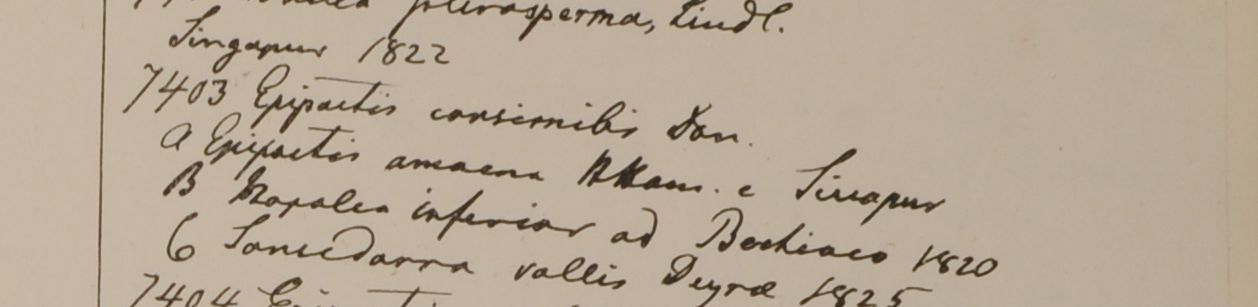 pterosperma, Lindl.
Singapur 1822
7403 Epipactis consimilis Don.
a Epipactis amaena Ham. e Sirrapur
B Napalea inferior ad Bechiaco 1820
6 vallis Deyræ 1825
7404